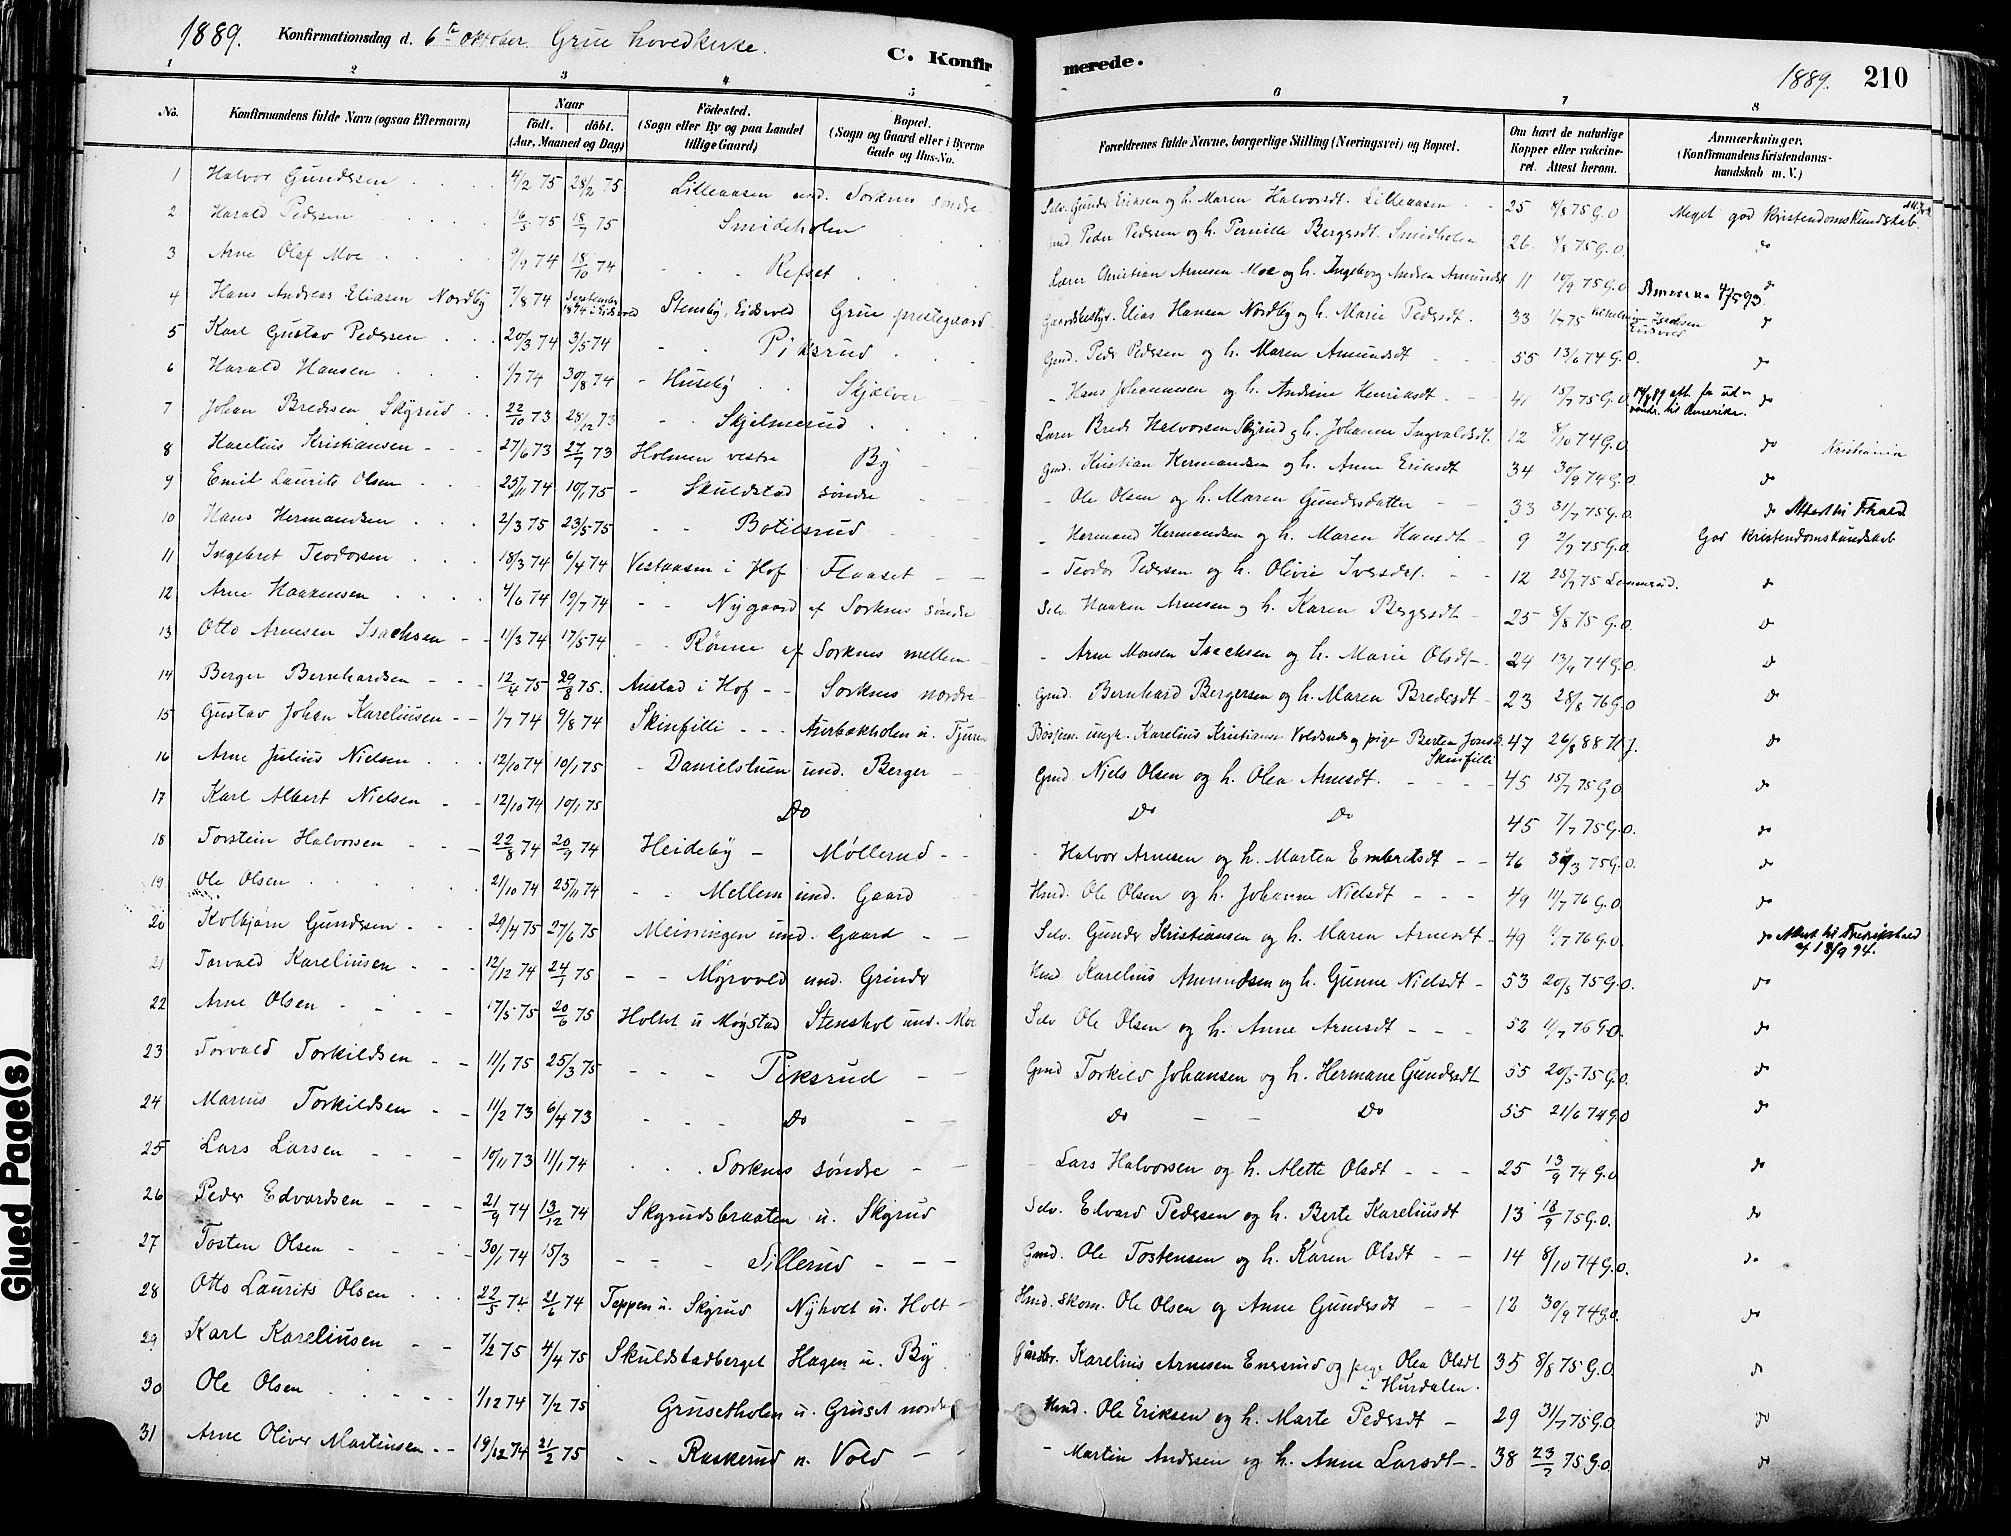 1889. Konfirmationsdag d. 6te oktober. Grue hovedkirke.
C. Konfirmerede.
1889. 210
1 2 3 4 5 6 7 8
No. Konfirmandens fulde Navn (ogsaa Efternavn) Naar født. døbt. (Aar, Maaned og Dag) Fødested. (Sogn eller By og paa Landet tillige Gaard) Bopæl. (Sogn og Gaard eller i Byerne Gade og Hus-No. Forældrenes fulde Navne, borgerlige Stilling (Næringsvei) og Bopæl. Om havt de naturlige Kopper eller vakcineret. Attest herom. Anmærkninger. (Konfirmandens Kristendomskundskab m. V.)
1 Halvor Gundersen 4/2 75 28/2 75 Lilleaasen und. Sorknes søndre Selv. Gunder Eriksen og h. Maren Halvorsdt. Lilleaasen 25 8/8 75 G.O Meget god Kristendomskundskab.
2 Harald Pedersen 16/5 75 18/7 75 Smideholen Peder Pedersen og h. Pernille Bergersdt. Smidholen 26. 8/8 75 G.O. do
3 Arne Olaf Moe 9/9 74 18/10 74 Refset Lærer Christian Arnesen Moe og h. Ingeborg Andrea Amundsdt 11 10/9 75 G.O do
4 Hans Andreas Eliasen Nordby 7/8 74 September 1874 i Eidsvold Stensby, Eidsvold Grue prestegaard Gaardsbestyr. Elias Hansen Nordby og h. Marie Pedersdt. 33 1/7 75 Eidsvold Amerika 4/5 93. do
5 Karl Gustav Pedersen 20/3 74 3/5 74 Piksrud Gmd. Peder Pedersen og h. Maren Amundsdt 55 13/6 74 G.O. do
6 Harald Hansen 1/7 74 30/8 74 Huseby Skjølver - Hans Johannesen og h. Andrine Henriksdt 41 15/7 75 G.O. att. fra udvandr. til Amerika. do
7 Johan Bredesen Skyrud 22/10 73 28/12 73 Skjelmerud Lærer Brede Halvorsen Skyrud og h. Johanne Ingvaldsdt. 12 8/10 74 G.O. do Kristiania
8 Karelius Kristiansen 27/6 73 27/7 73 Holmen vestre By Gmd. Kristian Hermandsen og h. Anne Eriksdt 34 30/9 74 G.O. do
9 Emil Laurits Olsen 25/11 74 10/1 75 Skuldstad søndre - Ole Olsen og h. Maren Gundersdatter 33 31/7 75 G.O. do Attest til Fhald.
10 Hans Hermandsen 2/3 75 23/5 75 Botilsrud - Hermand Hermandsen og h. Maren Hansdt 9 2/9 75 G.O. God Kristendomskundskab
11 Ingebret Teodorsen 18/3 74 6/4 74 Vestaasen i Hof Flaaset - Teodor Pedersen og h. Olivie Iversdt. 12 25/7 75 do
12 Arne Haakensen 4/6 74 19/7 74 Nygaard af Sorknes søndre Selv. Haaken Arnesen og h. Karen Bergersdt 25 8/8 75 G.O. do
13 Otto Arnesen Isachsen 11/3 74 17/5 74 Rønne af Sorknes mellem - Arne Monsen Isachsen og h. Marie Olsdt 24 13/9 74 G.O. do
14 Berger Bernhardsen 12/4 75 29/8 75. Austad i Hof Sorknes nordre Gmd. Bernhard Bergersen og h. Maren Bredesdt 23 28/8 76 G.O do
15 Gustav Johan Kareliusen 1/7 74 9/8 74 Skinfilli Aurbækholen u. Tjura ungk. Karelius Kristiansen og pige Bertea Jonsd. Skinfilli 47 26/8 88 H.J. do
16 Arne Julius Nielsen 12/10 74 10/1 75 Danielstuen und. Berger Gmd Niels Olsen og h. Olea Arnesdt. 45 15/7 75 G.O do
17 Karl Albert Nielsen 12/10 74 10/1 75 Do Do Do 45 7/7 75 G.O. do
18 Torstein Halvorsen 22/8 74 20/9 74 Heideby Møllerud - Halvor Arnesen og h. Martea Embretsdt 46 75 G.O. do
19 Ole Olsen 21/10 74 25/11 74 Mellem und. Gaard Hmd. Ole Olsen og h. Johanne Nielsdt 49 11/7 76 G.O. do
20 Kolbjørn Gundersen 29/4 75 27/6 75 Meiningen und. Gaard Selv. Gunder Kristiansen og h. Maren Arnesdt 49 11/7 76 G.O. do Attest til Fredrikshald af 18/9 94.
21 Torvald Kareliusen 12/12 74 24/1 75 Myrvold und. Grinder Hmd Karelius Amundsen og h. Gunne Nielsdt 53 20/5 75 G.O. do
22 Arne Olsen 17/5 75 20/6 75 Holtet u Møystad Stenshol und. Moe Selv Ole Olsen og h. Anne Arnesdt 52 11/7 76 G.O. do
23 Torvald Torkildsen 11/1 75 25/3 75 Piksrud Gmd Torkild Johansen og h. Hermane Gundersdt 55 20/5 75 G.O. do
24 Marius Torkildsen 11/2 73 6/4 73 Do Do Do 55 21/6 74 G.O do
25 Lars Larsen 10/11 73 11/1 74 Sorknes søndre - Lars Halvorsen og h. Alette Olsdt 25 13/9 74 G.O do
26 Peder Edvardsen 21/9 74 13/12 74 Skyrudsbraaten u. Skyrud Selv. Edvard Pedersen og h. Berte Kareliusdt 13 18/9 75 G.O. do
27 Tosten Olsen 30/1 74 15/3 Sillerud Gmd. Ole Tostensen og h. Karen Olsdt 14 8/10 74 G.O. do
28 Otto Laurits Olsen 22/5 74. 21/6 74 Teppen u. Skyrud Nyhvet u. Holt Hmd. Skom. Ole Olsen og Anne Gundersdt 12 30/9 74 G.O. do
29 Karl Kareliusen 7/2 75 4/4 75 Skuldstadberget Hagen u. By Gårdbr. Karelius Arnesen Enersrud og pige Olea Olsdt i Hurdalen. 35 8/8 75 G.O. do
30 Ole Olsen 1/12 74 7/2 75 Grusetholen u. Gruset nordre Hmd. Ole Eriksen og h. Marte Pedersdt 29 31/7 75 G.O do
31 Arne Oliver Martinsen 19/12 74 21/2 75 Raskerud u. Vold - Martin Andersen og h. Anne Larsdt 38 23/7 75 G.O. do
Glued Page(s)